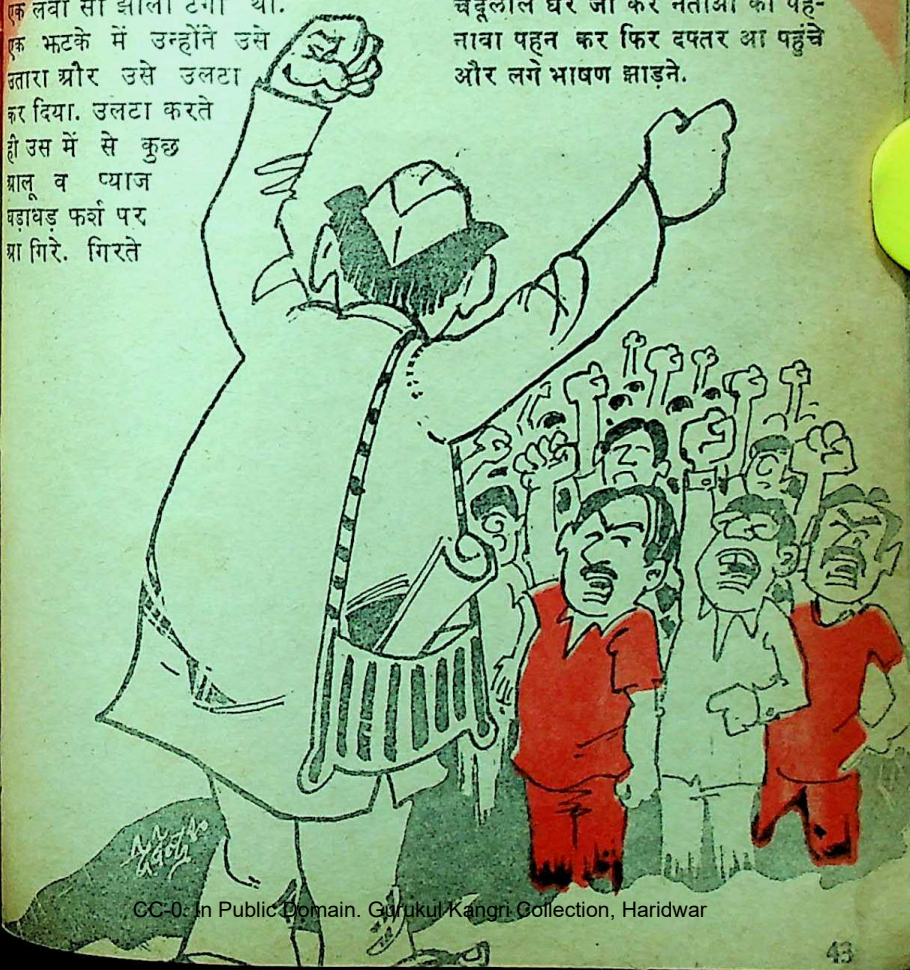 एक लंबी सी झोला टंगा था.
एक झटके में उन्होंने उसे
उतारा और उसे उलटा
कर दिया. उलटा करते
ही उस में से कुछ
आलू व प्याज
धड़ाधड़ फर्श पर
आ गिरे. गिरते
चंदूलाल घर जा कर नेताओं का पह-
नावा पहन कर फिर दफ्तर आ पहुंचे
और लगे भाषण झाड़ने.
CC-0. In Public Domain. Gurukul Kangri Collection, Haridwar
43